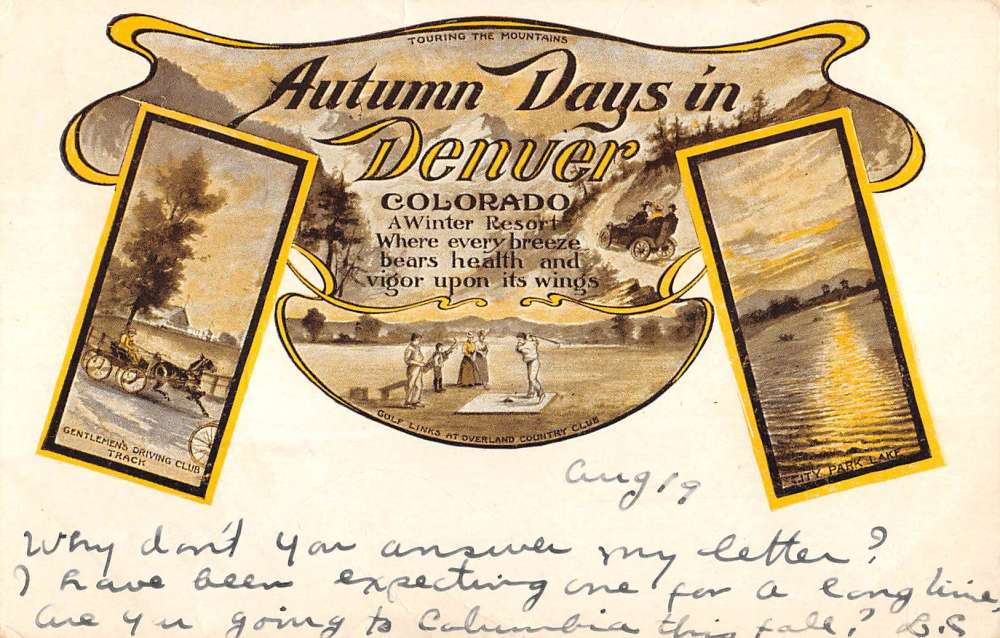 TOURING THE MOUNTAINS
Autumn Days in
Denver
COLORADO
A Winter Resort
Where every breeze
bears health and
vigor upon its wings
GENTLEMEN'S DRIVING CLUB
TRACK
GOLF LINKS AT OVERLAND COUNTRY CLUB
CITY PARK LAKE
Aug 19
Why don't you answer my letter?
I have been expecting one for a long time,
are you going to Columbia this fall?